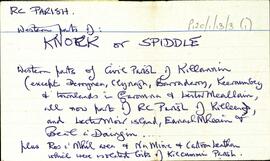 RC PARISH. P120/1/3/3 (i)
Western parts of:
KNOCK or SPIDDLE
Western parts of Civil Parish of Killannin
(except Derrynea, Clynagh, Banraderry,
& townlands in Garomna & Lettermeallain,
all now part of RC Parish of Killeen,
and Lettermóir island, Eanach Mheáin &
Béal a' Daingin
plus Ros a' Mhíl wen & Na Mine &
which were isolated bits of Killannin Parish.